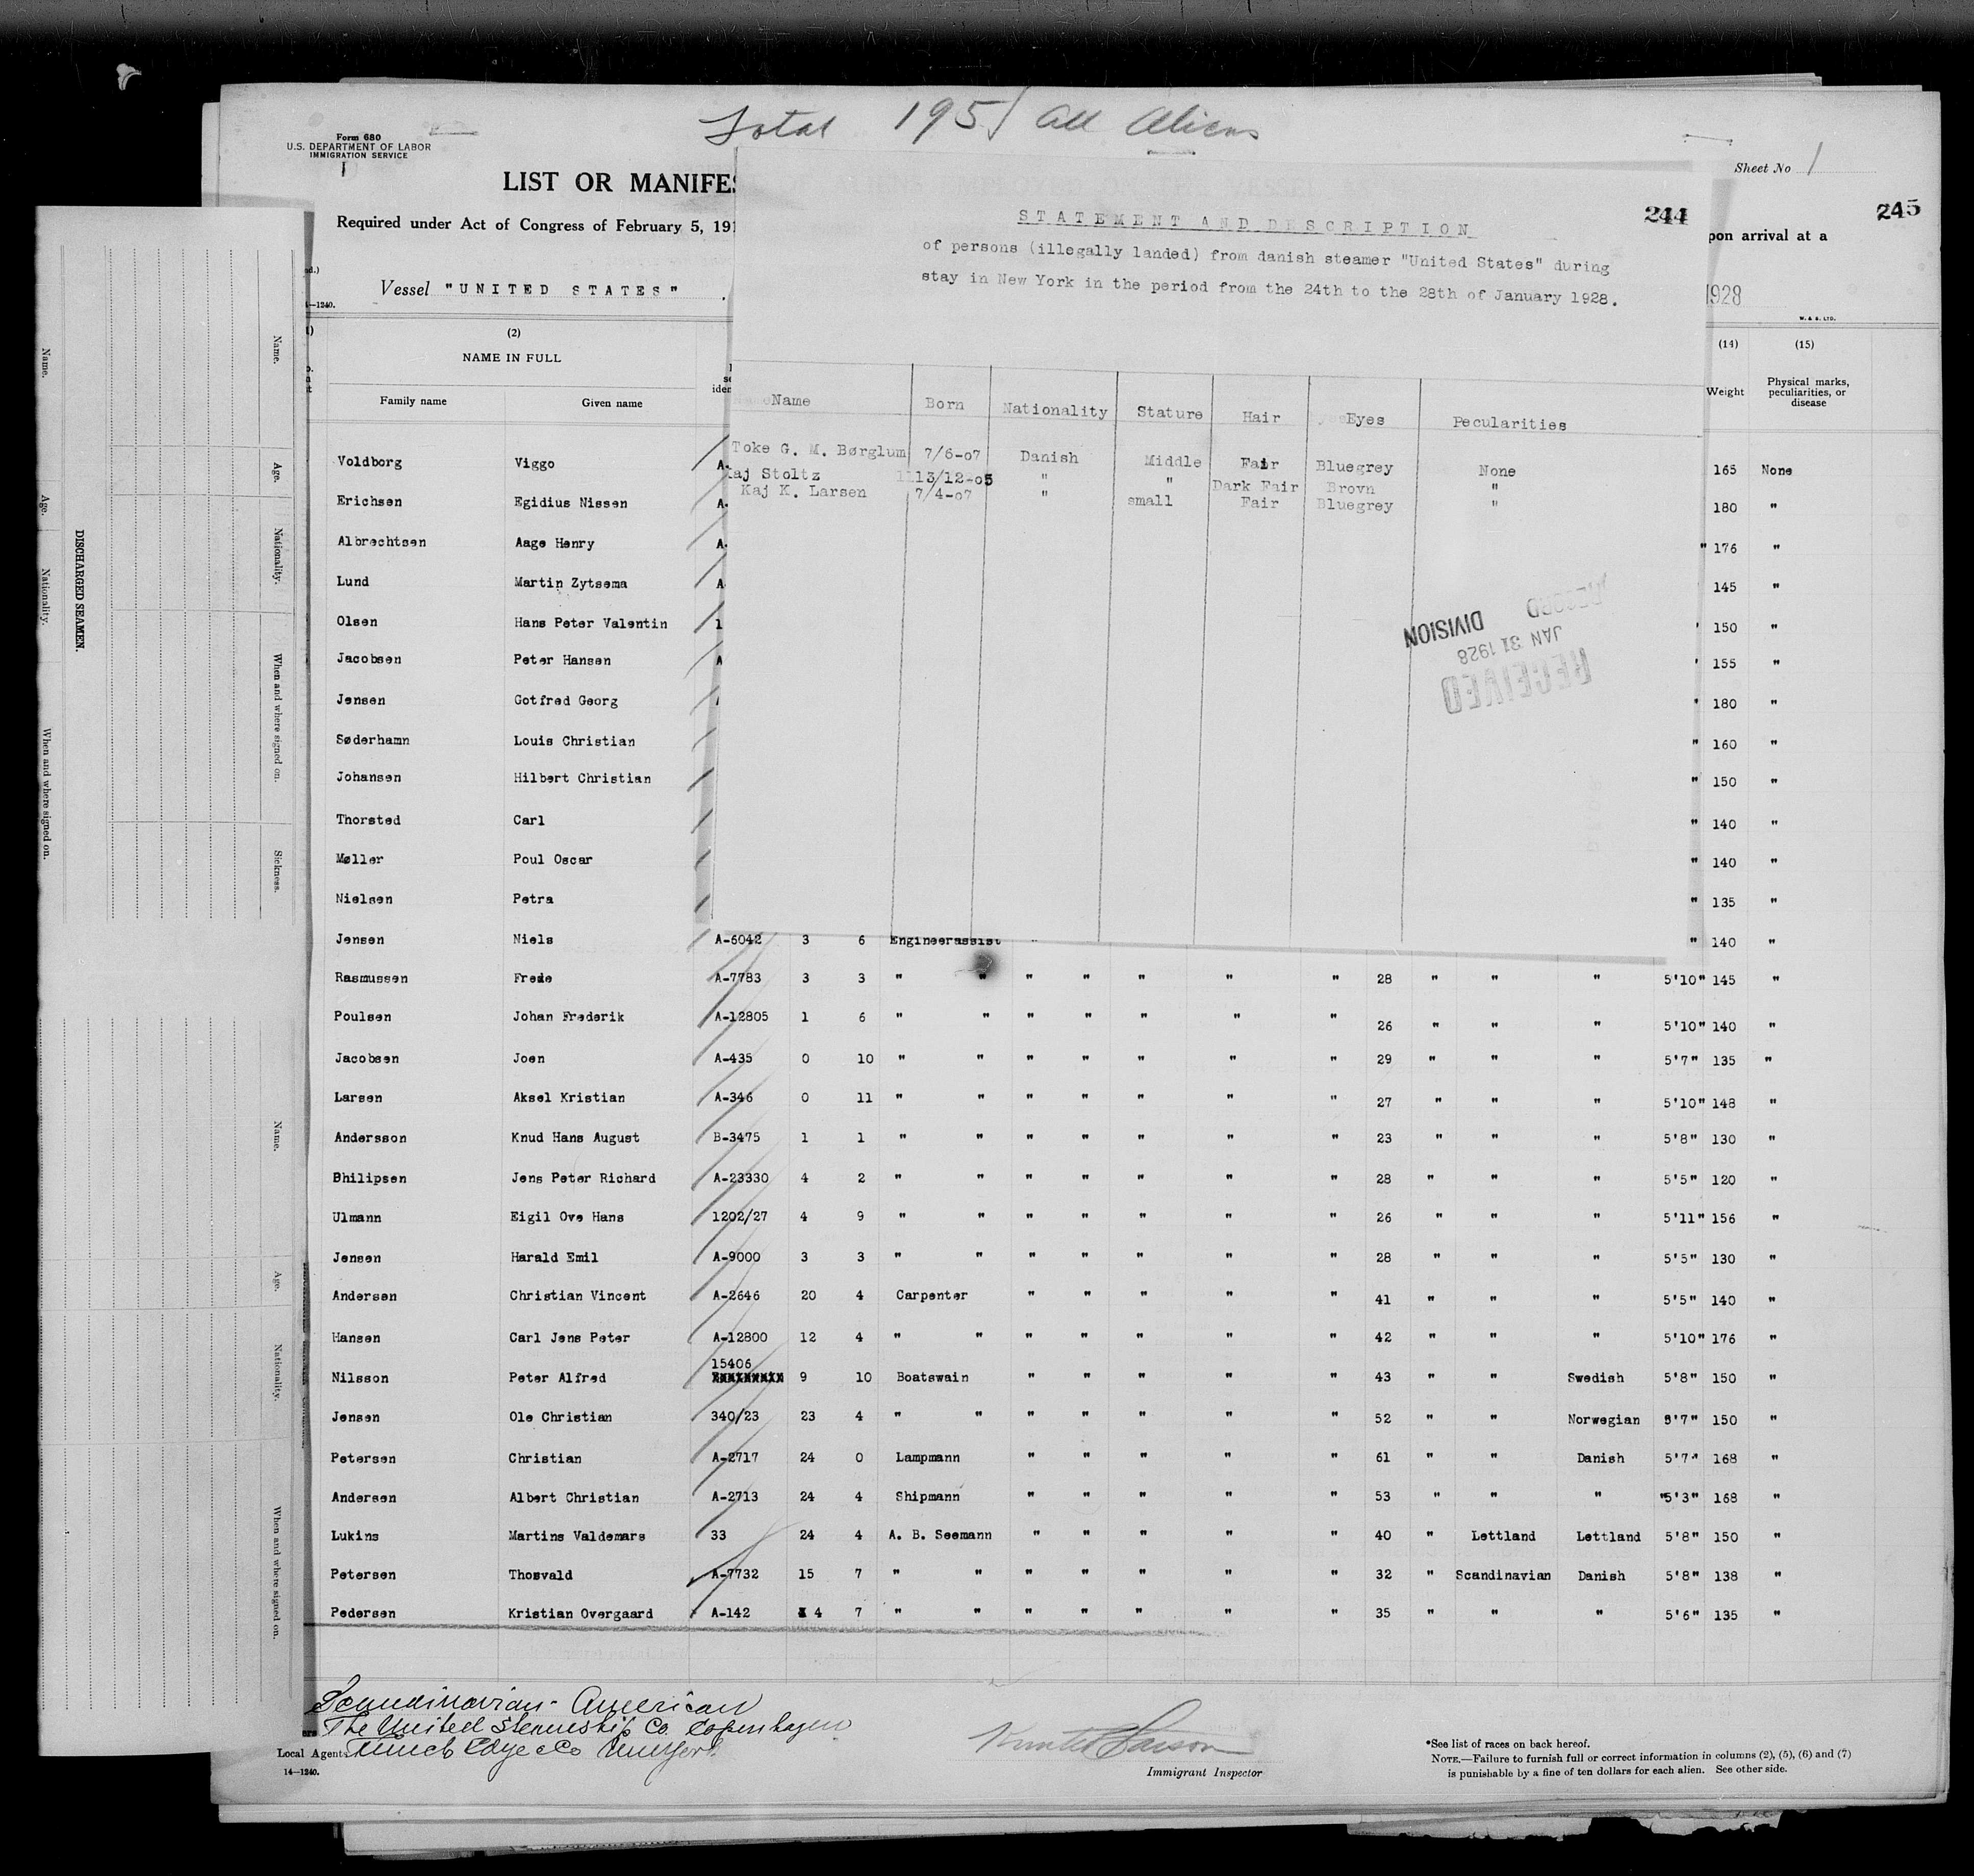 Total 195 / All Aliens
Form 680
U.S. DEPARTMENT OF LABOR
IMMIGRATION SERVICE
1
Sheet No 1
LIST OR MANIFES
244
245
Required under Act of Congress of February 5, 191
pon arrival at a
STATEMENT AND DESCRIPTION
of persons (illegally landed) from danish steamer "United States" during
stay in New York in the period from the 24th to the 28th of January 1928.
Vessel "UNITED STATES"
1928
W. & S. LTD.
—1240.
(2)
NAME IN FULL
Family name Given name
(14) (15)
Weight Physical marks, peculiarities, or disease
Name Born Nationality Stature Hair Eyes Pecularities
Toke G. M. Børglum 7/6-07 Danish Middle Fair Bluegrey None
aj Stoltz 13/12-05 " " Dark Fair Brovn "
Kaj K. Larsen 7/4-07 " small Fair Bluegrey "
RECEIVED
JAN 31 1928
RECORD DIVISION
Voldborg Viggo A- 165 None
Erichsen Egidius Nissen A- 180 "
Albrechtsen Aage Henry A- " 176 "
Lund Martin Zytsema A 145 "
Olsen Hans Peter Valentin 1 ' 150 "
Jacobsen Peter Hansen A ' 155 "
Jensen Gotfred Georg " 180 "
Søderhamn Louis Christian " 160 "
Johansen Hilbert Christian " 150 "
Thorsted Carl " 140 "
Møller Poul Oscar " 140 "
Nielsen Petra " 135 "
Jensen Niels A-6042 3 6 Engineerassist " " 140 "
Rasmussen Frede A-7783 3 3 " " " " " " " 28 " " " 5'10" 145 "
Poulsen Johan Frederik A-12805 1 6 " " " " " " " 26 " " " 5'10" 140 "
Jacobsen Joen A-435 0 10 " " " " " " " 29 " " " 5'7" 135 "
Larsen Aksel Kristian A-346 0 11 " " " " " " " 27 " " " 5'10" 148 "
Andersson Knud Hans August B-3475 1 1 " " " " " " " 23 " " " 5'8" 130 "
Bhilipsen Jens Peter Richard A-23330 4 2 " " " " " " " 28 " " " 5'5" 120 "
Ulmann Eigil Ove Hans 1202/27 4 9 " " " " " " " 26 " " " 5'11" 156 "
Jensen Harald Emil A-9000 3 3 " " " " " " " 28 " " " 5'5" 130 "
Andersen Christian Vincent A-2646 20 4 Carpenter " " " " " 41 " " " 5'5" 140 "
Hansen Carl Jens Peter A-12800 12 4 " " " " " " " 42 " " " 5'10" 176 "
Nilsson Peter Alfred 15406 9 10 Boatswain " " " " " 43 " " Swedish 5'8" 150 "
Jensen Ole Christian 340/23 23 4 " " " " " " " 52 " " Norwegian 5'7" 150 "
Petersen Christian A-2717 24 0 Lampmann " " " " " 61 " " Danish 5'7" 168 "
Andersen Albert Christian A-2713 24 4 Shipmann " " " " " 53 " " " "5'3" 168 "
Lukins Martins Valdemars 33 24 4 A. B. Seemann " " " " " 40 " Lettland Lettland 5'8" 150 "
Petersen Thosvald A-7732 15 7 " " " " " " " 32 " Scandinavian Danish 5'8" 138 "
Pedersen Kristian Overgaard A-142 4 7 " " " " " " " 35 " " " 5'6" 135 "
Scandinavian-American
The United Steamship Co. Copenhagen
Local Agents
14—1240.
Immigrant Inspector
*See list of races on back hereof.
NOTE.—Failure to furnish full or correct information in columns (2), (5), (6) and (7)
is punishable by a fine of ten dollars for each alien. See other side.
DISCHARGED SEAMEN.
Name. Age. Nationality. When and where signed on.
Name. Age. Nationality. When and where signed on. Sickness.
Name. Age. Nationality. When and where signed on.